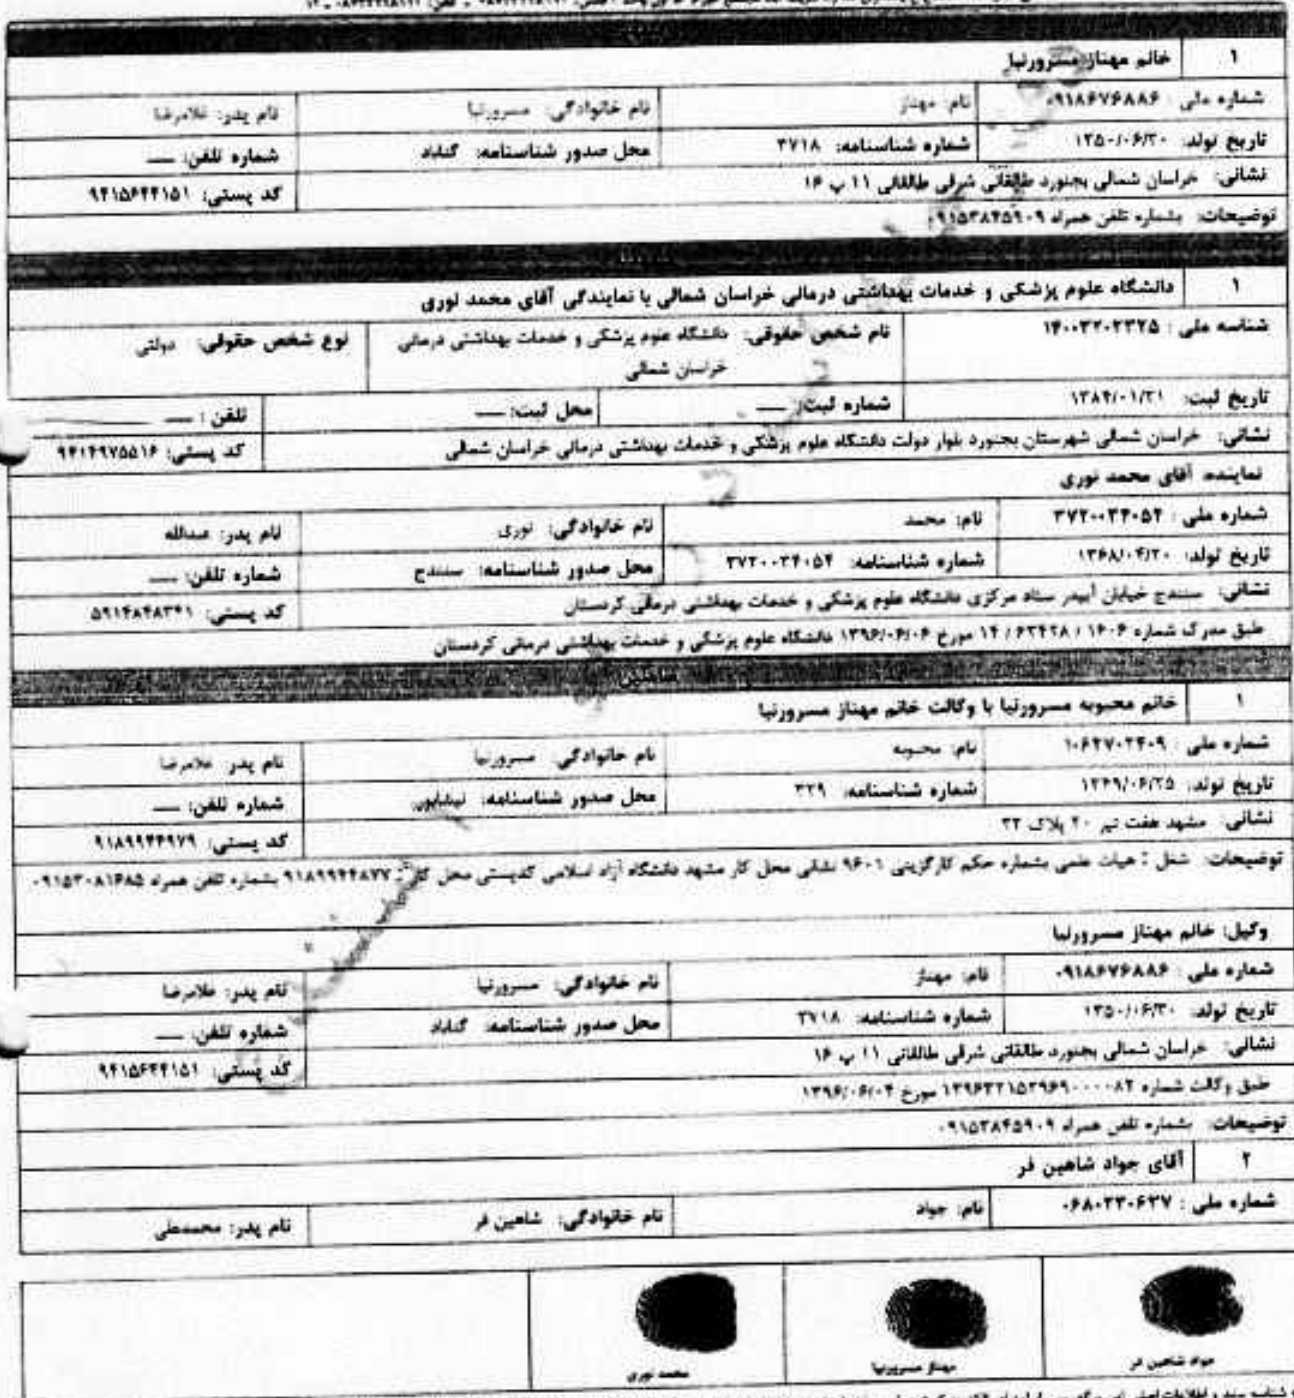 ۱ خانم مهناز مسرورنیا
شماره ملی : ۰۹۱۸۶۷۶۸۸۶ نام: مهناز نام خانوادگی: مسرورنیا نام پدر: غلامرضا
تاریخ تولد: ۱۳۵۰/۰۶/۳۰ شماره شناسنامه: ۳۷۱۸ محل صدور شناسنامه: گناباد شماره تلفن: ---
نشانی: خراسان شمالی بجنورد طالقانی شرقی طالقانی ۱۱ پ ۱۶ کد پستی: ۹۴۱۵۶۴۴۱۵۱
توضیحات: بشماره تلفن همراه ۰۹۱۵۳۸۴۵۹۰۹
۱ دانشگاه علوم پزشکی و خدمات بهداشتی درمانی خراسان شمالی با نمایندگی آقای محمد نوری
شناسه ملی : ۱۴۰۰۳۲۰۲۳۲۵ نام شخص حقوقی: دانشگاه علوم پزشکی و خدمات بهداشتی درمانی نوع شخص حقوقی: دولتی
خراسان شمالی
تاریخ ثبت: ۱۳۸۴/۰۱/۳۱ شماره ثبت: --- محل ثبت: --- تلفن : ---
نشانی: خراسان شمالی شهرستان بجنورد بلوار دولت دانشگاه علوم پزشکی و خدمات بهداشتی درمانی خراسان شمالی کد پستی: ۹۴۱۴۹۷۵۵۱۶
نماینده: آقای محمد نوری
شماره ملی : ۳۷۲۰۰۳۴۰۵۴ نام: محمد نام خانوادگی: نوری نام پدر: عبدالله
تاریخ تولد: ۱۳۶۸/۰۴/۲۰ شماره شناسنامه: ۳۷۲۰۰۳۴۰۵۴ محل صدور شناسنامه: سنندج شماره تلفن: ---
نشانی: سنندج خیابان آبیدر ستاد مرکزی دانشگاه علوم پزشکی و خدمات بهداشتی درمانی کردستان کد پستی: ۵۹۱۴۸۴۸۳۴۱
طبق مدرک شماره ۱۶۰۶ / ۶۳۴۲۸ / ۱۴ مورخ ۱۳۹۶/۰۶/۰۶ دانشگاه علوم پزشکی و خدمات بهداشتی درمانی کردستان
ضامنین
۱ خانم محبوبه مسرورنیا با وکالت خانم مهناز مسرورنیا
شماره ملی : ۱۰۶۲۷۰۲۴۰۹ نام: محبوبه نام خانوادگی: مسرورنیا نام پدر: غلامرضا
تاریخ تولد: ۱۳۴۹/۰۶/۲۵ شماره شناسنامه: ۳۲۹ محل صدور شناسنامه: نیشابور شماره تلفن: ---
نشانی: مشهد هفت تیر ۲۰ پلاک ۳۲ کد پستی: ۹۱۸۹۹۴۴۹۷۹
توضیحات: شغل : هیات علمی بشماره حکم کارگزینی ۹۶۰۱ نشانی محل کار مشهد دانشگاه آزاد اسلامی کدپستی محل کار : ۹۱۸۹۹۴۴۸۷۷ بشماره تلفن همراه ۰۹۱۵۳۰۸۱۶۸۵
وکیل: خانم مهناز مسرورنیا
شماره ملی : ۰۹۱۸۶۷۶۸۸۶ نام: مهناز نام خانوادگی: مسرورنیا نام پدر: غلامرضا
تاریخ تولد: ۱۳۵۰/۰۶/۳۰ شماره شناسنامه: ۳۷۱۸ محل صدور شناسنامه: گناباد شماره تلفن: ---
نشانی: خراسان شمالی بجنورد طالقانی شرقی طالقانی ۱۱ پ ۱۶ کد پستی: ۹۴۱۵۶۴۴۱۵۱
طبق وکالت شماره ۱۳۹۶۳۲۱۵۳۹۶۹۰۰۰۰۸۲ مورخ ۱۳۹۶/۰۶/۰۴
توضیحات: بشماره تلفن همراه ۰۹۱۵۳۸۴۵۹۰۹
۲ آقای جواد شاهین فر
شماره ملی : ۰۶۸۰۲۳۰۶۳۷ نام: جواد نام خانوادگی: شاهین فر نام پدر: محمدعلی
جواد شاهین فر مهناز مسرورنیا محمد نوری